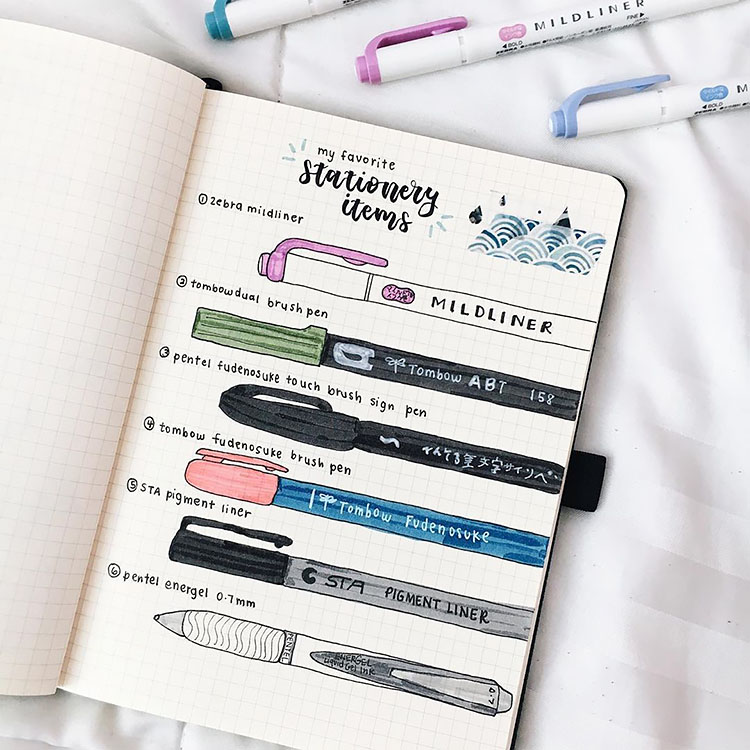 MILDLINER
FINE▶
◀BOLD
◀BOLD
my favorite
stationery
items
① zebra mildliner
MILDLINER
② tombow dual brush pen
Tombow ABT 158
③ pentel fudenosuke touch brush sign pen
④ tombow fudenosuke brush pen
Tombow Fudenosuke
⑤ STA pigment liner
STA PIGMENT LINER
⑥ pentel energel 0.7mm
PENTEL
ENERGEL
Liquid Gel Ink
0.7